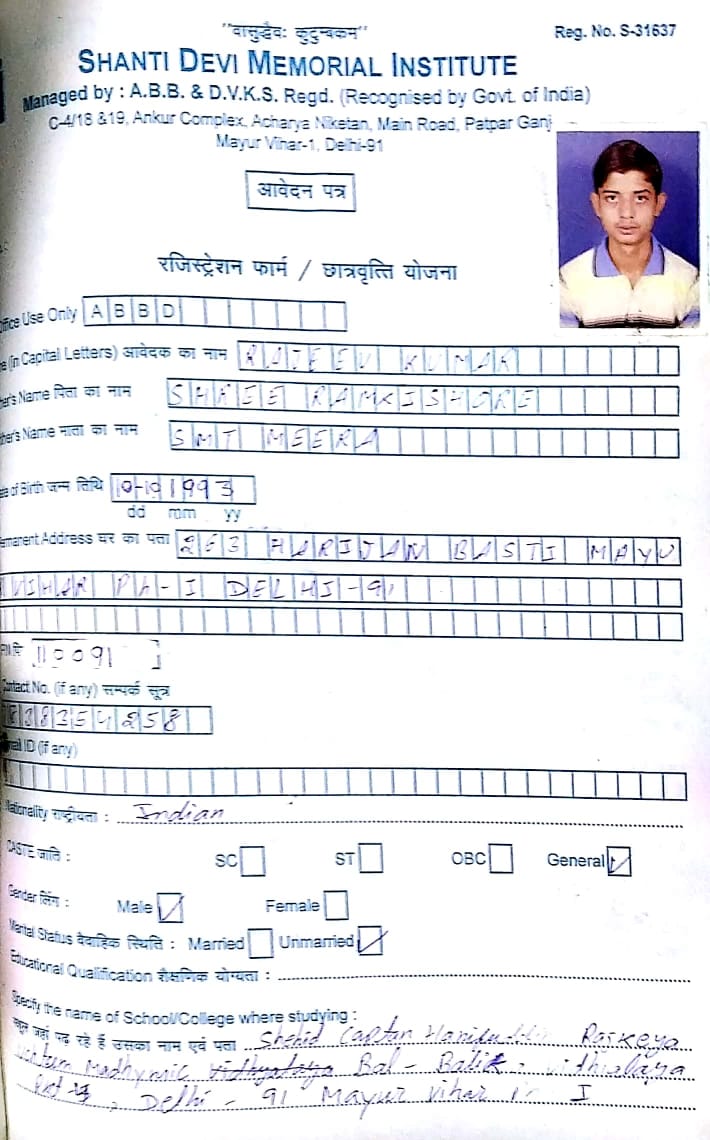 "वासुद्धैवः कुटुम्बकम"
Reg. No. S-31637
SHANTI DEVI MEMORIAL INSTITUTE
Managed by : A.B.B. & D.V.K.S. Regd. (Recognised by Govt. of India)
C-4/18 &19, Ankur Complex, Acharya Niketan, Main Road, Patpar Ganj
Mayur Vihar-1, Delhi-91
आवेदन पत्र
रजिस्ट्रेशन फार्म / छात्रवृत्ति योजना
Office Use Only ABBD
(in Capital Letters) आवेदक का नाम RAJEEV KUMAR
Name पिता का नाम SHREE RAMKISHORE
Name माता का नाम SMT MEERA
of Birth जन्म तिथि 10-10 1993
dd mm yy
Permanent Address घर का पता 263 HARIJAN BASTI MAYU
VIHAR PH-I DELHI-91
110091
Contact No. (if any) सम्पर्क सूत्र
ID (if any)
Nationality राष्ट्रीयता : Indian
CASTE जाति : SC ST OBC General ✓
Gender लिंग : Male ✓ Female
Marital Status वैवाहिक स्थिति : Married Unmarried ✓
Educational Qualification शैक्षणिक योग्यता :
Specify the name of School/College where studying :
स्कूल जहां पढ़ रहे हैं उसका नाम एवं पता Shahid Captan Hanifuddin Rajkeya
Madhymic Vidhyalaya Bal - Balika vidhialaya
Delhi - 91 Mayur vihar I